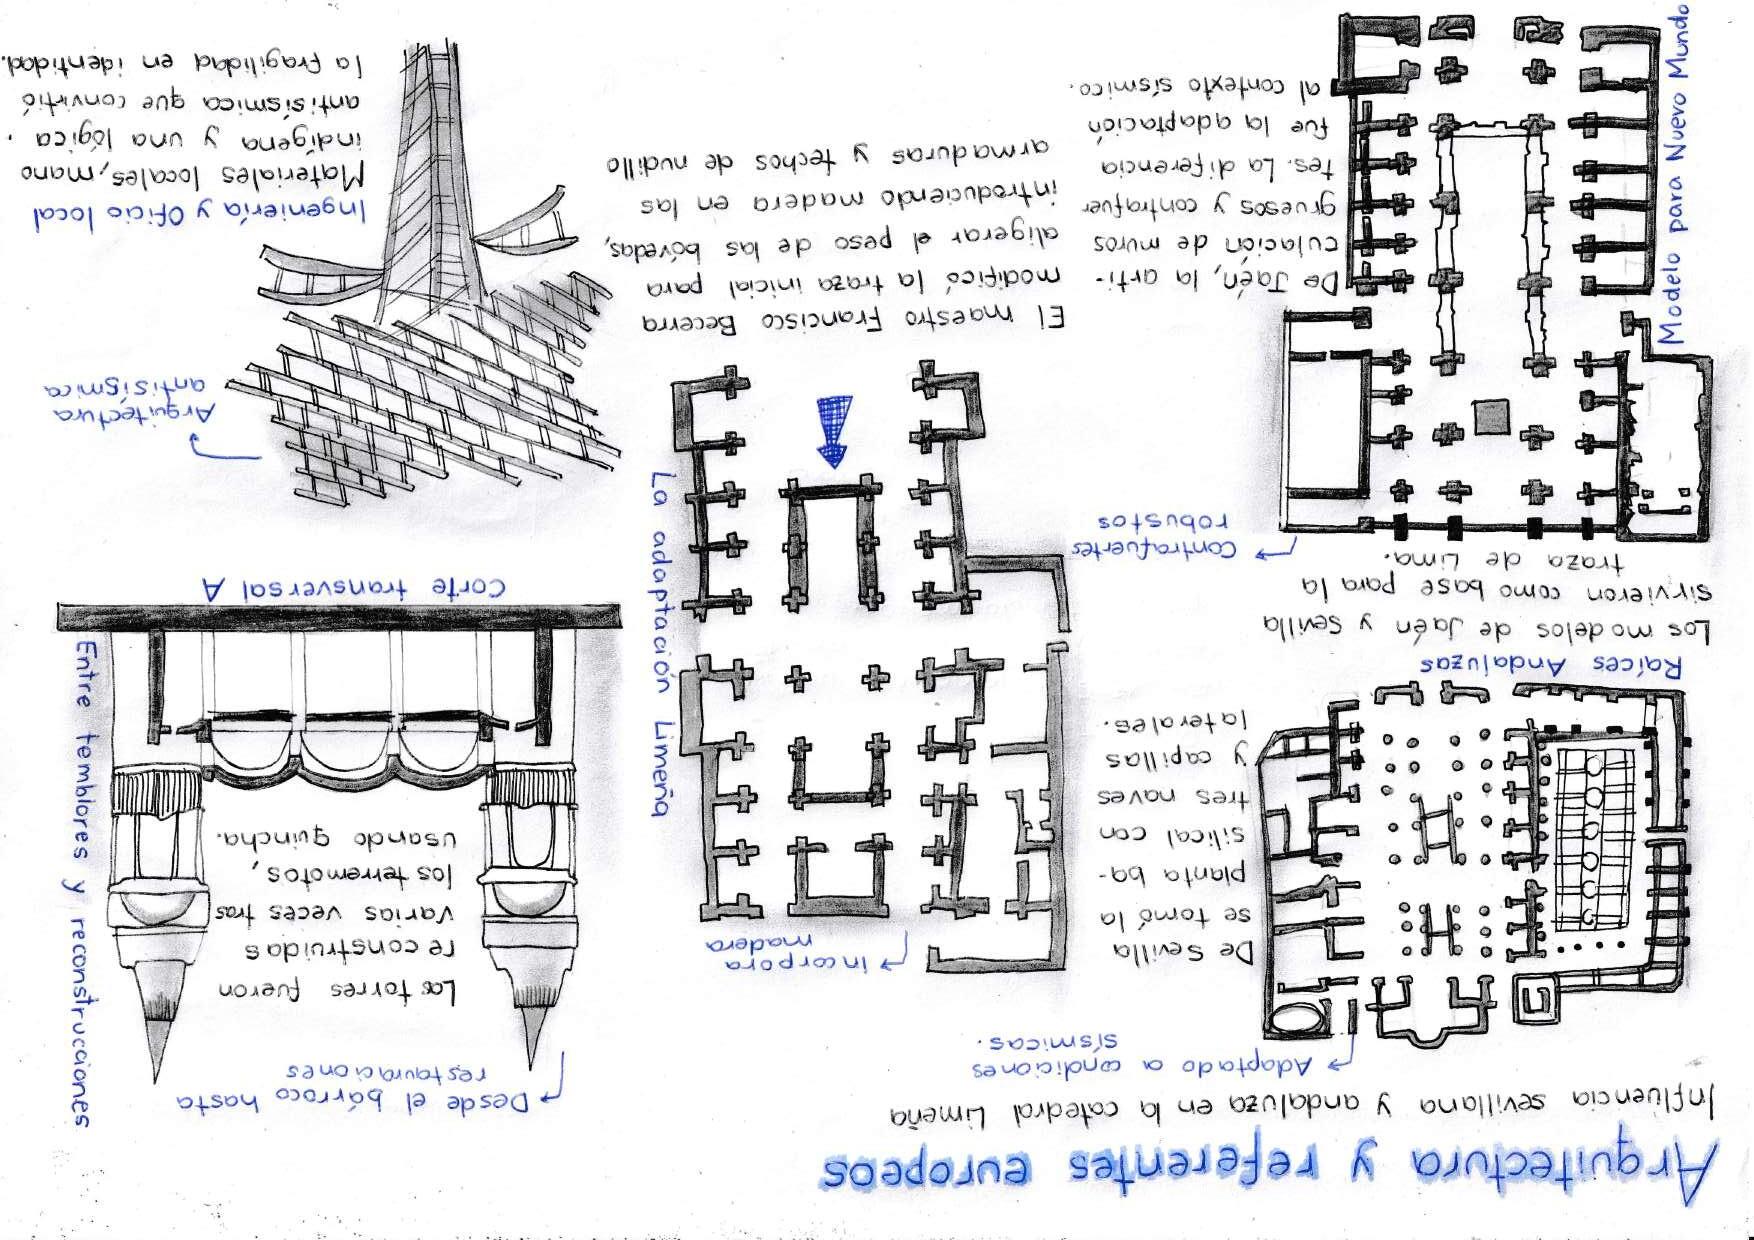 Arquitectura y referentes europeos
Influencia sevillana y andaluza en la catedral Limeña
Adaptado a condiciones
sísmicas.
De Sevilla
se tomó la
planta ba-
silical con
tres naves
y capillas
laterales.
Raíces Andaluzas
Los modelos de Jaén y Sevilla
sirvieron como base para la
traza de Lima.
Contrafuertes
robustos
Modelo para Nuevo Mundo
De Jaén, la arti-
culación de muros
gruesos y contrafuer
tes. La diferencia
fue la adaptación
al contexto sísmico.
Incorpora
madera
La adaptación Limeña
El maestro Francisco Becerra
modificó la traza inicial para
aligerar el peso de las bóvedas,
introduciendo madera en las
armaduras y techos de nudillo
Desde el bárroco hasta
restauraciones
Las torres fueron
reconstruidas
varias veces tras
los terremotos,
usando quincha.
Entre temblores y reconstrucciones
Corte transversal A
Arquitéctura
antisísmica
Ingeniería y Oficio local
Materiales locales, mano
indígena y una lógica
antisísmica que convirtió
la fragilidad en identidad.